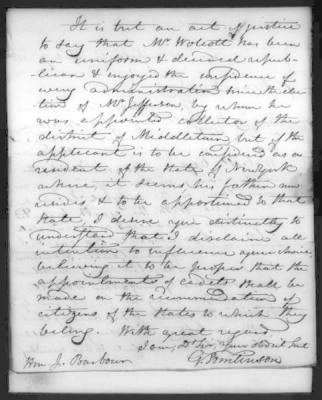 It is but an act of justice
to say that Mr Wolcott has been
an uniform & decided repub-
lican & enjoyed the confidence of
every administration since the elec-
tion of Mr Jefferson, by whom he
was appointed collector of the
district of Middletown but if the
applicant is to be considered as a
resident of the State of New York
where, it seems, his father now
resides, & to be apportioned to that
State, I desire you distinctly to
understand that I disclaim all
intention to influence your choice
believing it to be proper that the
appointments of cadets shall be
made on the recommendation of
citizens of the States to which they
belong. With great regard
I am, Dr Sir, your obdt Sert
G. Tomlinson
Hon J. Barbour